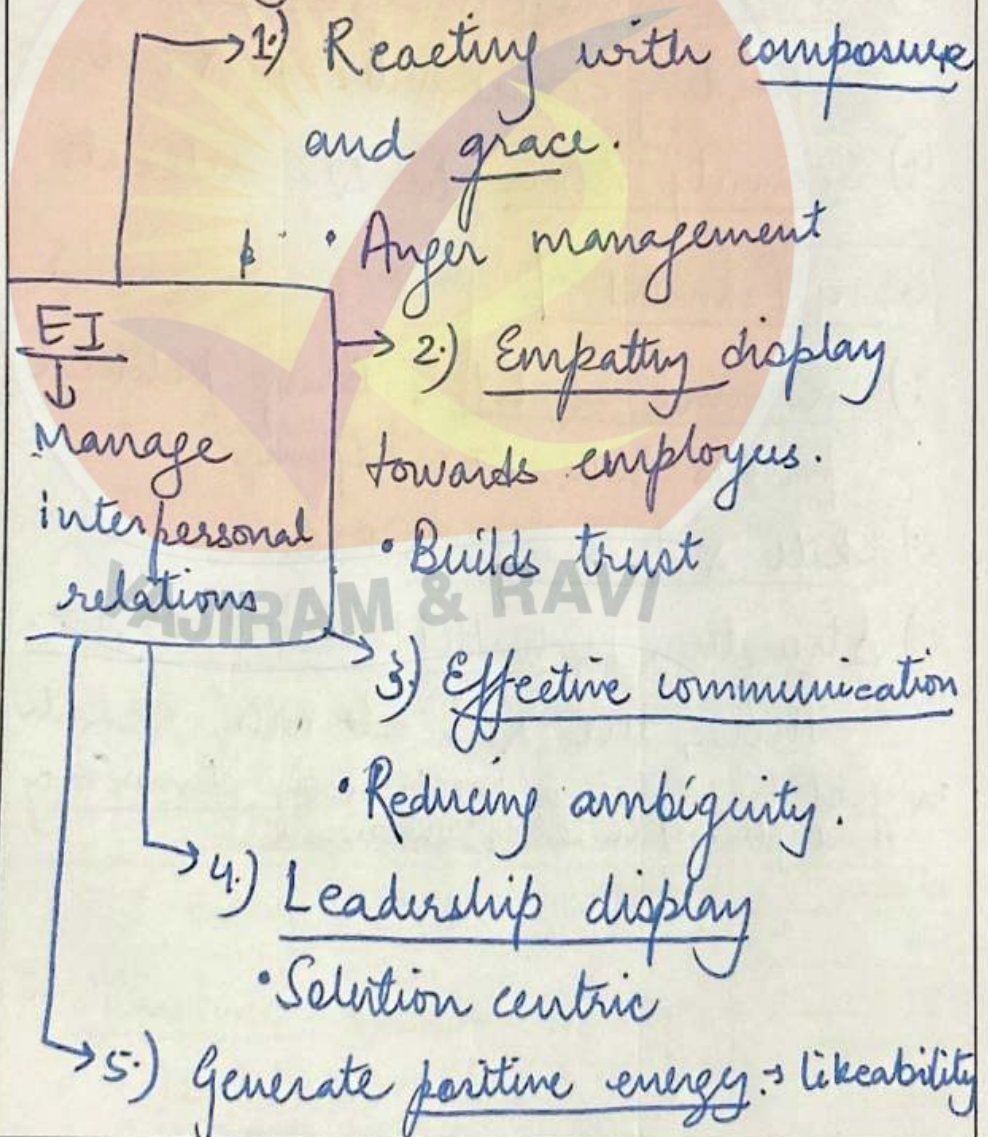 1.) Reacting with composure
and grace.
• Anger management
EI
↓
Manage
interpersonal
relations
→ 2.) Empathy display
towards employees.
• Builds trust
VAJIRAM & RAVI
→ 3.) Effective communication
• Reducing ambiguity.
→ 4.) Leadership display
• Solution centric
→ 5.) Generate positive energy → likeability